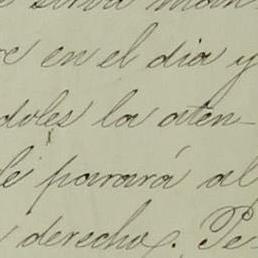 en el dia y
doles la aten-
le parará al
derecho. Pe-